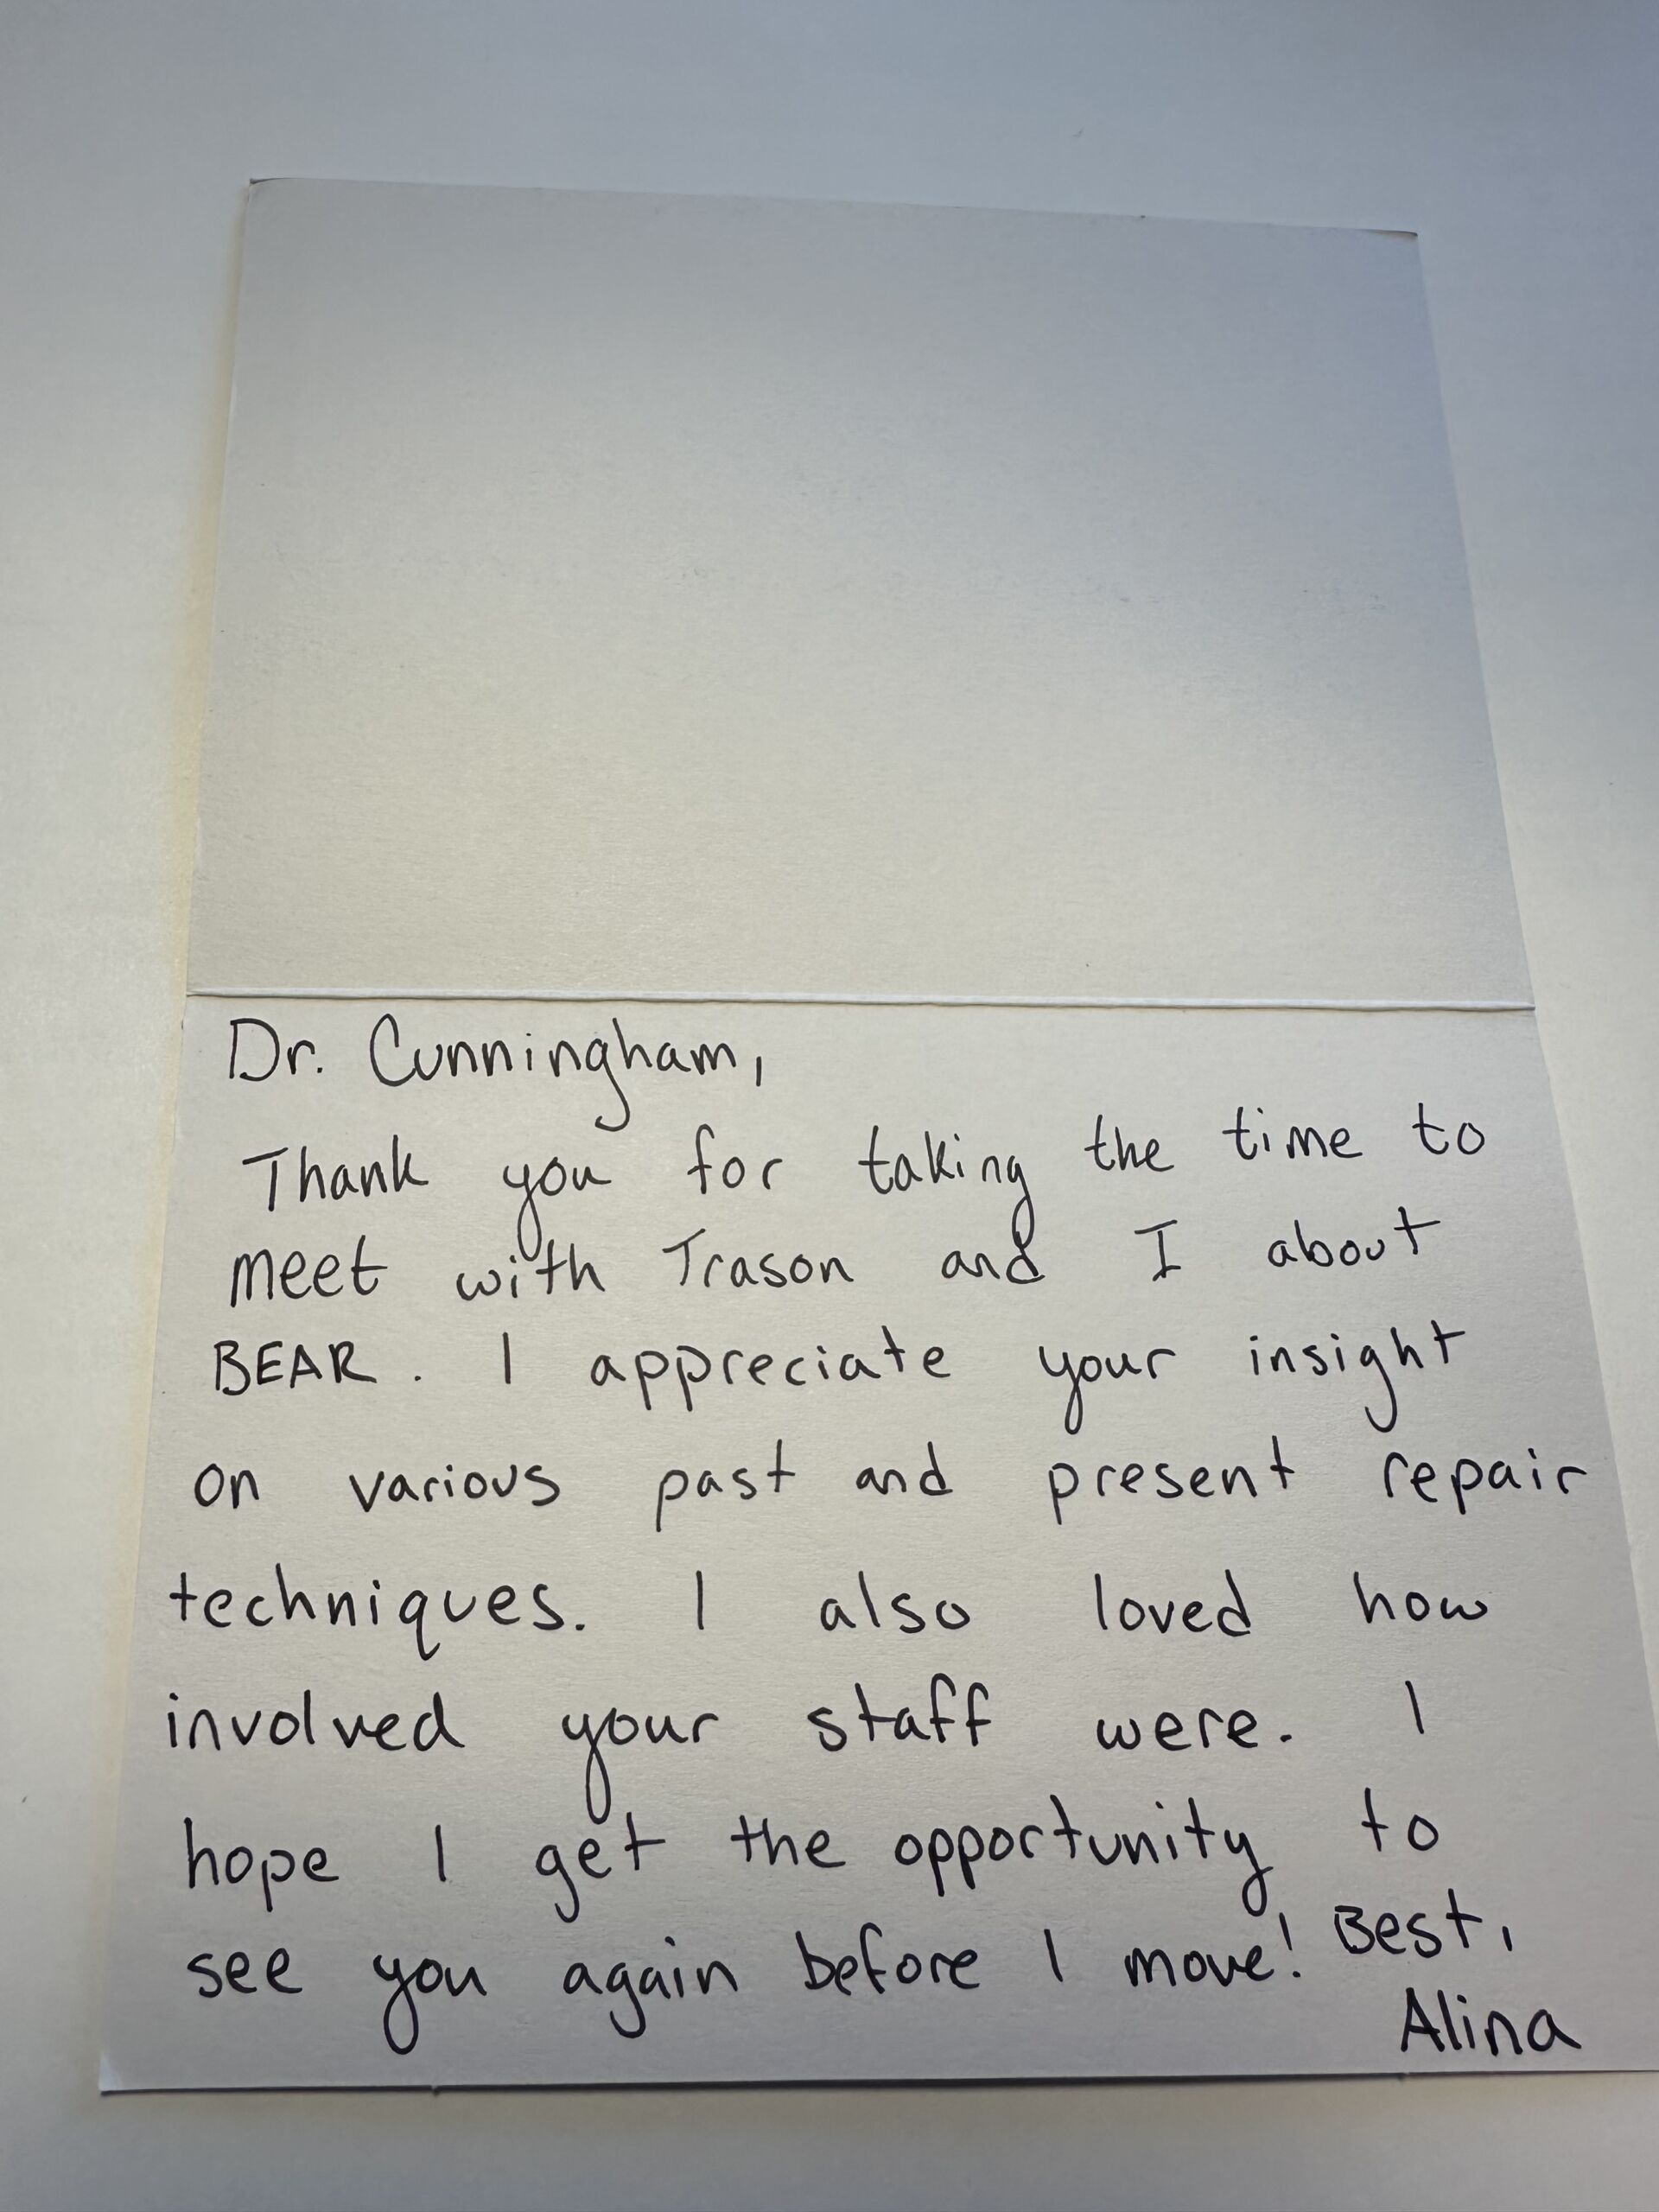 Dr. Cunningham,
Thank you for taking the time to
meet with Trason and I about
BEAR. I appreciate your insight
on various past and present repair
techniques. I also loved how
involved your staff were. I
hope I get the opportunity to
see you again before I move! Best,
Alina